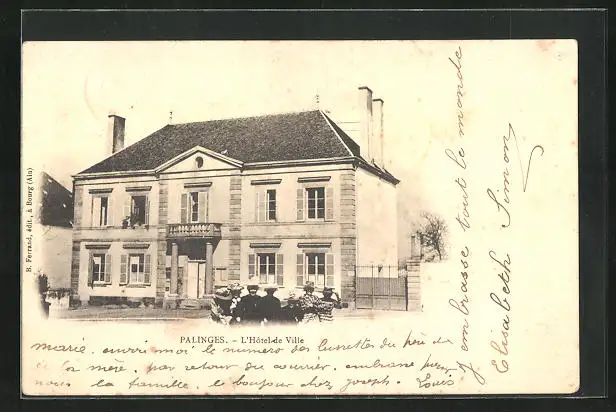 B. Ferrand, édit., à Bourg (Ain)
PALINGES. - L'Hôtel de Ville
Marie. moi le numero des lunettes du père
la mère, par retour du courrier. embrasse
nous la famille, le bonjour chez Joseph. Louis
J'embrasse tout le monde
Elisabeth Simon